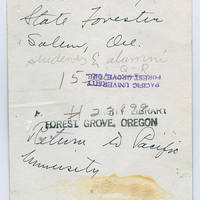 State Forester
Salem, Ore.
students & alumni
O-P
15
PACIFIC UNIVERSITY
FOREST GROVE, ORE.
LIBRARY
FOREST GROVE, OREGON
Return to Pacific
University